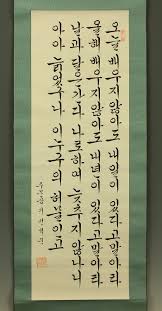 오늘 배우지 않아도 내일이 있다고 말아라
올해 배우지 않아도 내년이 있다고 말아라
날과 달은 나로 하여 늦추지 않나니
아아 늙었구나 이 누구의 허물이고